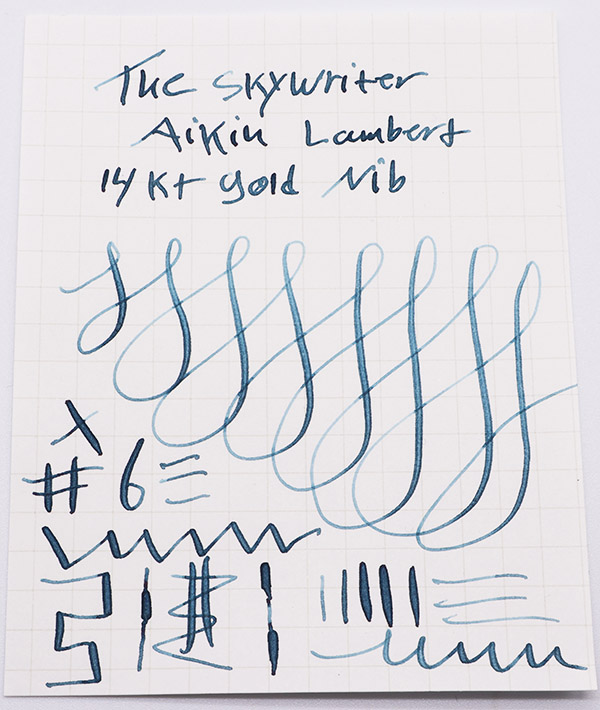 The Skywriter
Aikin Lambert
14 Kt gold Nib
X
# 6